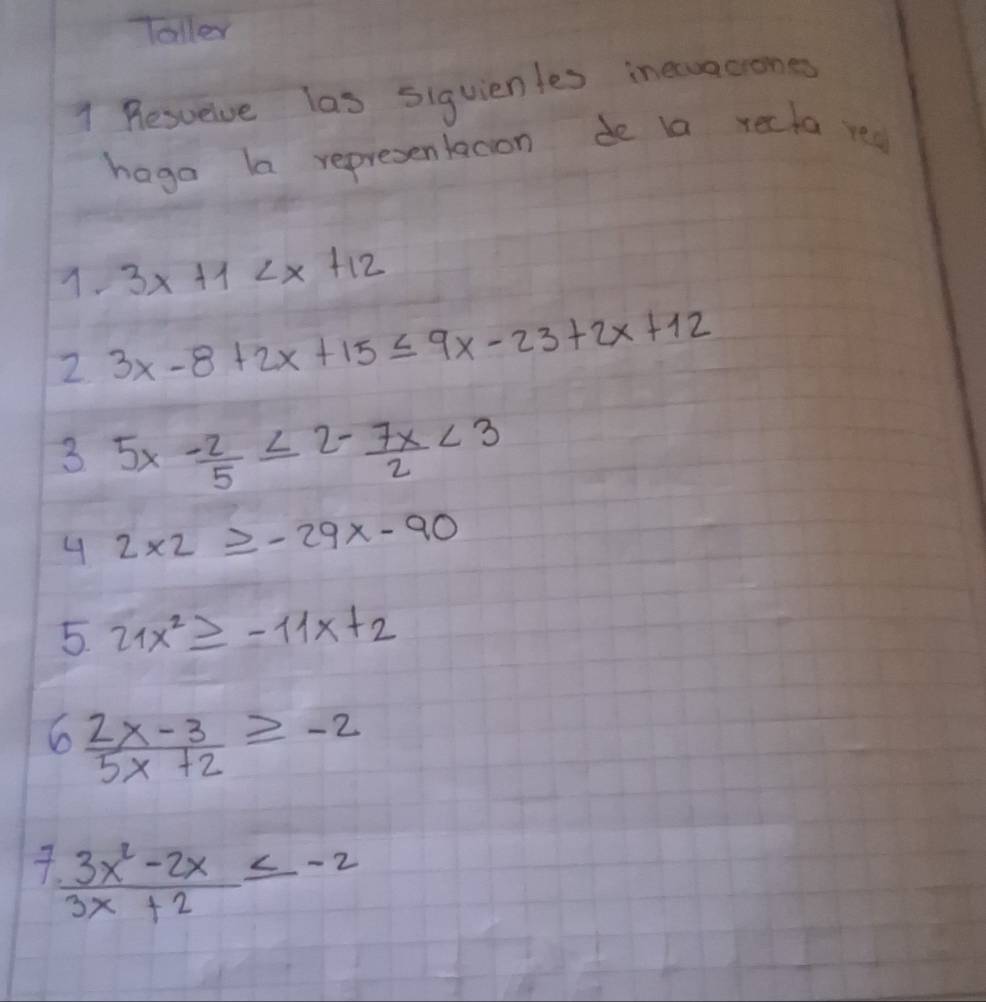 Taller
1 Resuelve las siguientes inecuaciones
haga la representacion de la recta real
1. 3x + 1 < x + 12
2 3x - 8 + 2x + 15 ≤ 9x - 23 + 2x + 12
3 5x \frac{-2}{5} ≤ 2 - \frac{7x}{2} < 3
4 2x2 ≥ -29x - 90
5. 21x² ≥ -11x + 2
6 \frac{2x - 3}{5x + 2} ≥ -2
7. \frac{3x² - 2x}{3x + 2} ≤ -2